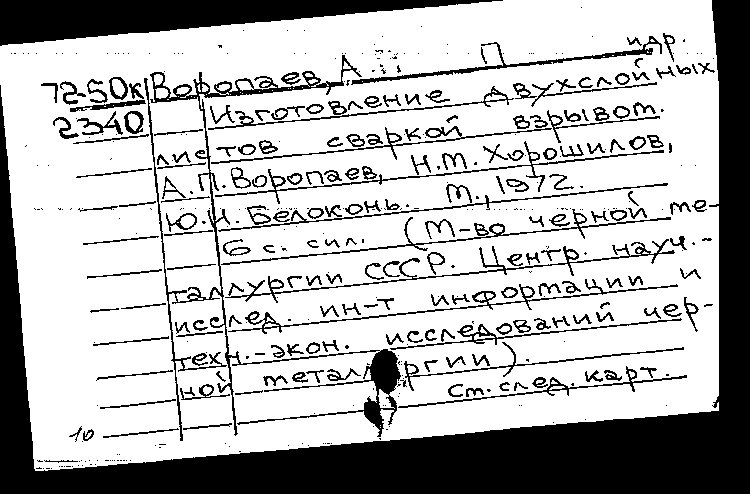 72-50к Воропаев, А. П. и др.
2340 Изготовление двухслойных
листов сваркой взрывом.
А.П. Воропаев, Н.М. Хорошилов,
Ю.И. Белоконь. М., 1972.
6 с. с ил. (М-во черной ме-
таллургии СССР. Центр. науч.-
исслед. ин-т информации и
техн.-экон. исследований чер-
ной металлургии).
См. след. карт.
10